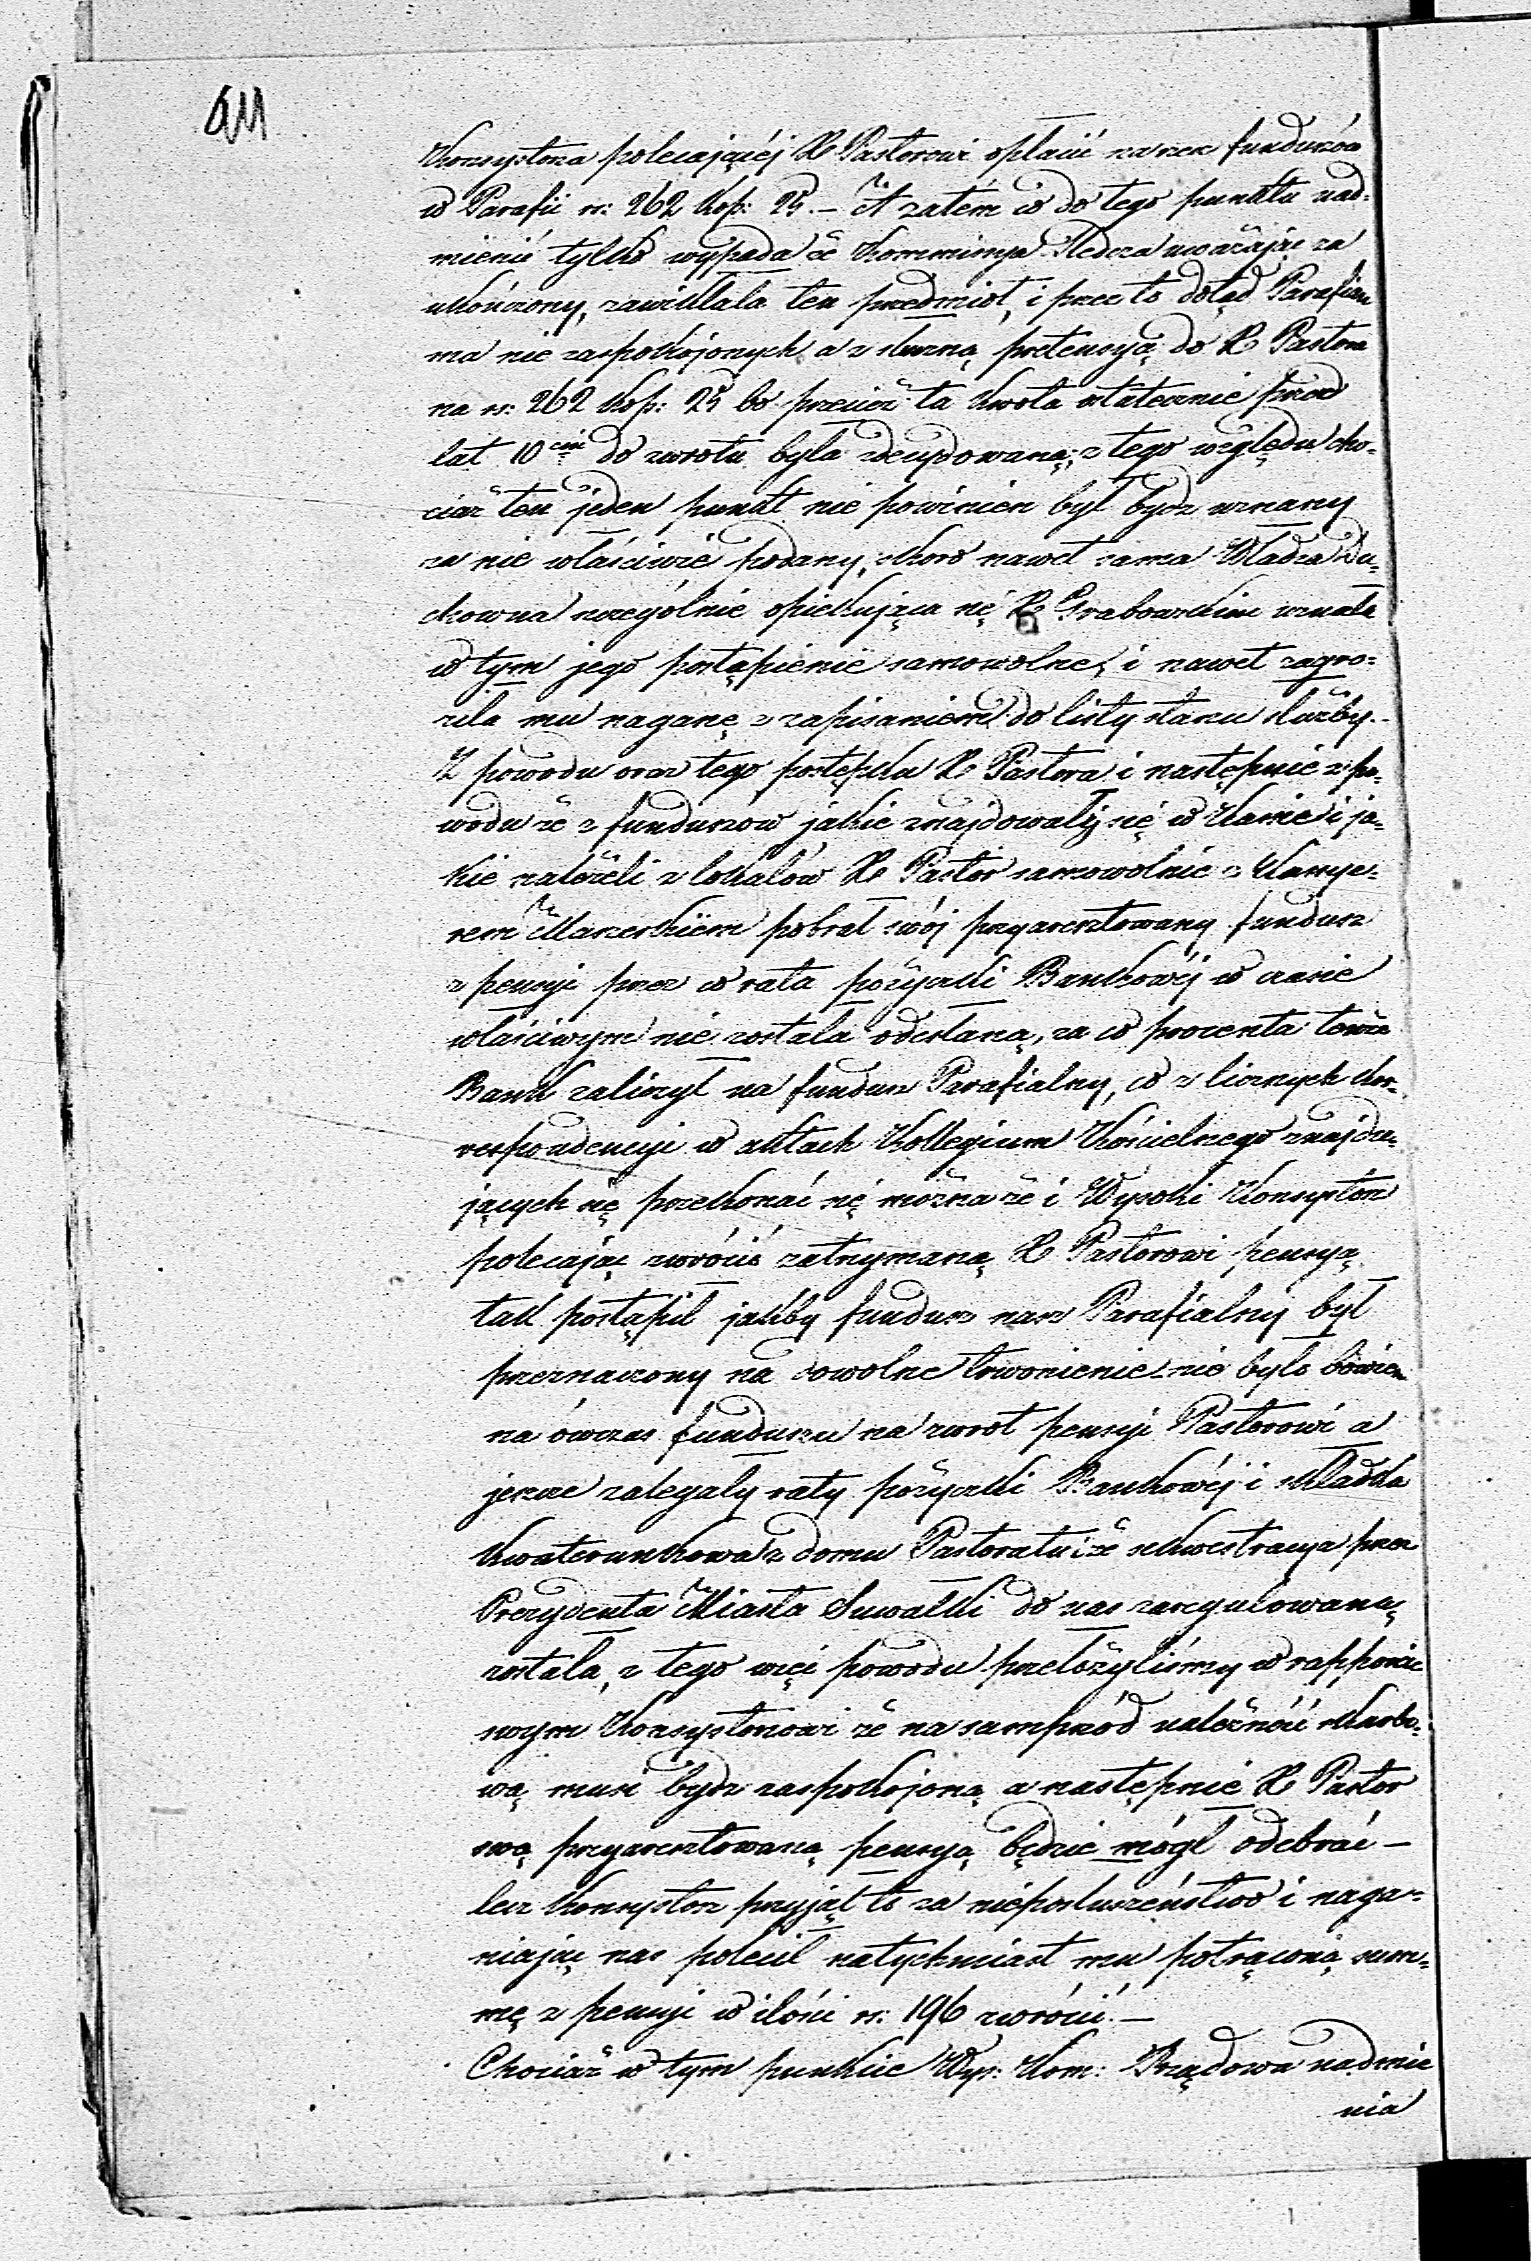 Konsystorza polecającéj X Pastorowi opłacić na rzecz funduszów
w Parafii rs: 262 kop: 25. – A zatém co do tego punktu nad-
mienić tylko wypada że Kommissya Śledcza uważając za
ukończony, zawikłała ten przedmiot, i przez to dotąd Parafian
ma nie zaspokojonych a z słuszną pretensyą do X Pastora
na rs: 262 kop: 25 bo przecież ta kwota ostatecznie przed
lat 10ciu do zwrotu była zdecydowaną; z tego względu cho-
ciaż ten jeden punkt nie powinien był bydź uznany
za nie właściwie podany, skoro nawet sama Władza Du-
chowna szczególnie opiekująca się X Grabowskim uznała
w tym jego postąpienie samowolne, i nawet zagro-
ziła mu naganę z zapisaniem do listy stanu służby.–
Z powodu oraz tego postępku X Pastora i następnie z po-
wodu że z funduszow jakie znajdowały się w Kassie i ja-
kie należeli z lokalów X Pastor samowolnie z Kassye-
rem pobrał swój przyaresztowany fundusz
z pensyi przez co rata pożyczki Bankowéj w czasie
właściwym nie została odesłaną, za co procenta tenże
Bank zaliczył na fundusz Parafialny, co z licznych kor-
respondencyi w aktach Kollegium Kościelnego znajdu-
jących się przekonać się można że i Wysoki Konsystorz
polecając zwrócić zatrzymaną X Pastorowi pensyą
tak postąpił jakby fundusz nasz Parafialny był
przeznaczony na dowolne trwonienie nie było bowiem
na ówczas funduszu na zwrot pensyi Pastorowi a
jeszcze zalegały raty pożyczki Bankowéj i składka
kwaterunkowa z domu Pastoratu że sekwestracya przez
Prezydenta Miasta Suwałki do nas zaregulowaną
została, z tego więc powodu przełożyliśmy w rapporcie
swym Konsystorzowi że na samprzód należność skarbo-
wą musi bydź zaspokojoną a następnie X Pastor
swą przyaresztowaną pensyą będzie mógł odebrać –
lecz Konsystorz przyjął to za nieposłuszeństwo i naga-
niając nas polecił natychmiast mu potrąconą sum-
mę z pensyi w ilości rs: 196 zwrócić. –
Chociaż w tym punkcie Wys: Kom: Rządowa nadmie
nia